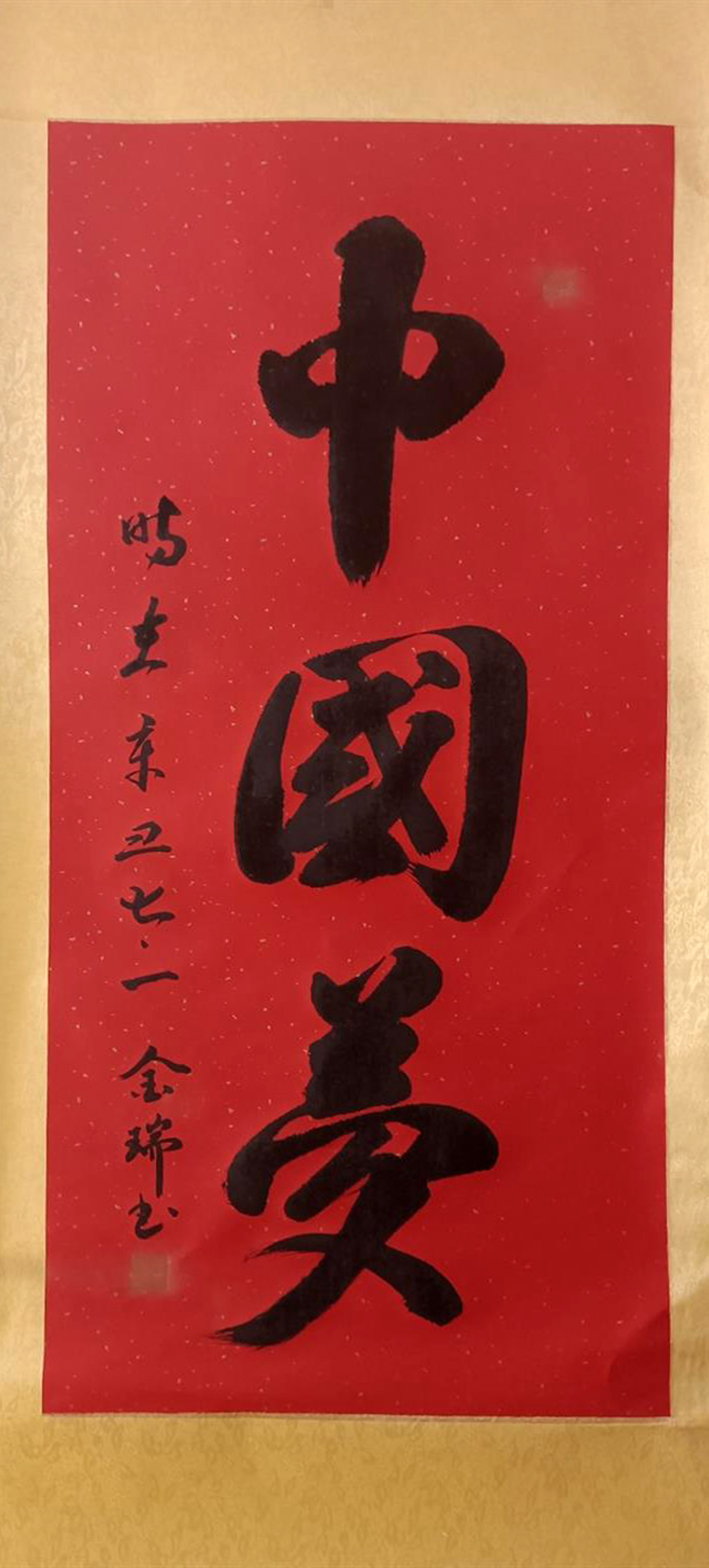 中國夢
時在辛丑七·一 金瑞书